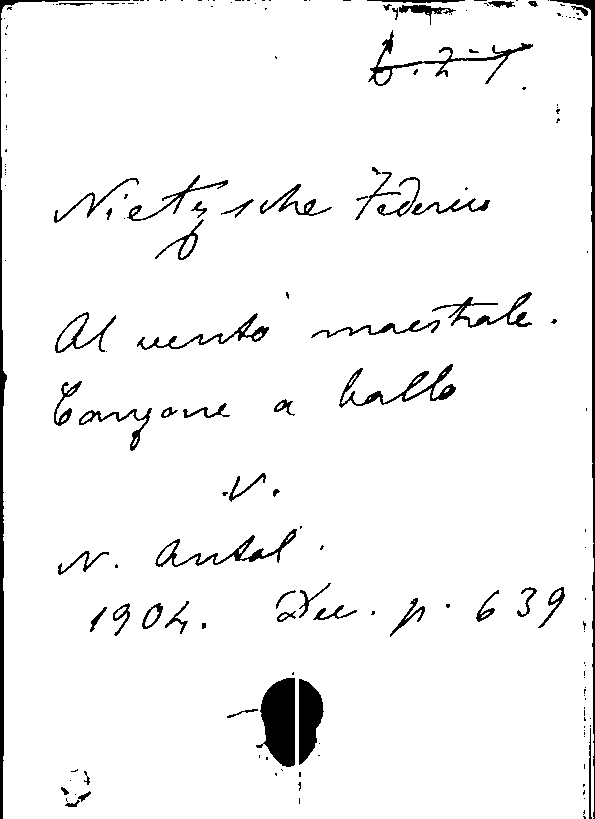 Nietzsche Federico
Al vento maestrale.
Canzone a ballo
V.
N. Antol.
1904. Dec. p. 639